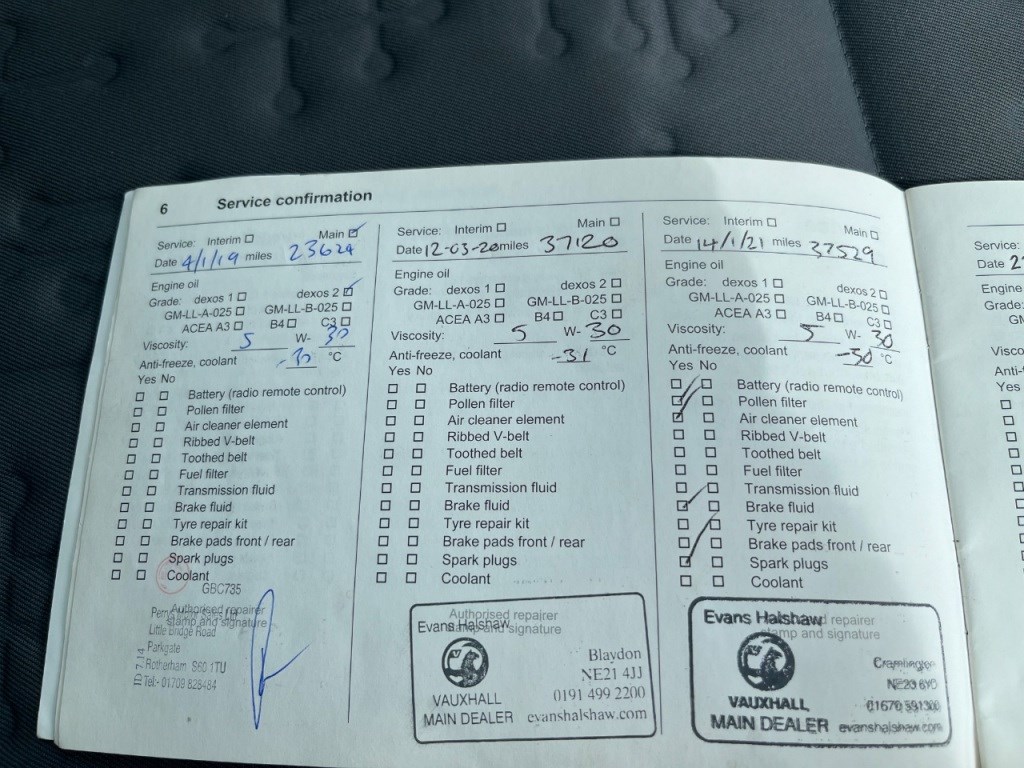 6 Service confirmation
Service: Interim ☐ Main ☑
Date 4/1/19 miles 23624
Engine oil
Grade: dexos 1 ☐ dexos 2 ☑
GM-LL-A-025 ☐ GM-LL-B-025 ☐
ACEA A3 ☐ B4 ☐ C3 ☐
Viscosity: 5 W- 30
Anti-freeze, coolant -30 °C
Yes No
☐ ☐ Battery (radio remote control)
☐ ☐ Pollen filter
☐ ☐ Air cleaner element
☐ ☐ Ribbed V-belt
☐ ☐ Toothed belt
☐ ☐ Fuel filter
☐ ☐ Transmission fluid
☐ ☐ Brake fluid
☐ ☐ Tyre repair kit
☐ ☐ Brake pads front / rear
☐ ☐ Spark plugs
☐ ☐ Coolant
GBC735
Authorised repairer
stamp and signature
Little Bridge Road
Parkgate
Rotherham S60 1TU
Tel:- 01709 828484
Service: Interim ☐ Main ☐
Date 12-03-20 miles 37120
Engine oil
Grade: dexos 1 ☐ dexos 2 ☐
GM-LL-A-025 ☐ GM-LL-B-025 ☐
ACEA A3 ☐ B4 ☐ C3 ☐
Viscosity: 5 W- 30
Anti-freeze, coolant -31 °C
Yes No
☐ ☐ Battery (radio remote control)
☐ ☐ Pollen filter
☐ ☐ Air cleaner element
☐ ☐ Ribbed V-belt
☐ ☐ Toothed belt
☐ ☐ Fuel filter
☐ ☐ Transmission fluid
☐ ☐ Brake fluid
☐ ☐ Tyre repair kit
☐ ☐ Brake pads front / rear
☐ ☐ Spark plugs
☐ ☐ Coolant
Authorised repairer
Evans Halshaw
stamp and signature
Blaydon
NE21 4JJ
0191 499 2200
VAUXHALL
MAIN DEALER evanshalshaw.com
Service: Interim ☐ Main ☐
Date 14/1/21 miles 37529
Engine oil
Grade: dexos 1 ☐ dexos 2 ☐
GM-LL-A-025 ☐ GM-LL-B-025 ☐
ACEA A3 ☐ B4 ☐ C3 ☐
Viscosity: 5 W- 30
Anti-freeze, coolant -30 °C
Yes No
☐ ☐ Battery (radio remote control)
☑ ☐ Pollen filter
☑ ☐ Air cleaner element
☐ ☐ Ribbed V-belt
☐ ☐ Toothed belt
☐ ☐ Fuel filter
☐ ☐ Transmission fluid
☑ ☐ Brake fluid
☐ ☐ Tyre repair kit
☐ ☐ Brake pads front / rear
☑ ☐ Spark plugs
☐ ☐ Coolant
Evans Halshaw repairer
stamp and signature
Cramlington
NE23 6YD
VAUXHALL
MAIN DEALER evanshalshaw.com
Service:
Date 2
Engine
Grade:
Visco
Anti-f
Yes